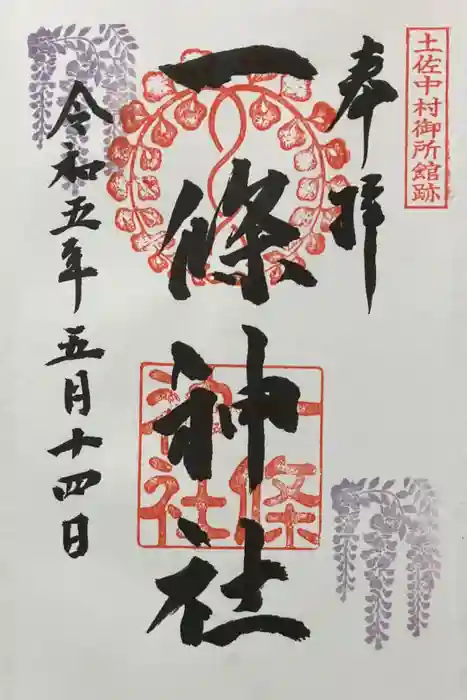 土佐中村御所館跡
奉拝
一條神社
一條
神社
令和五年五月十四日